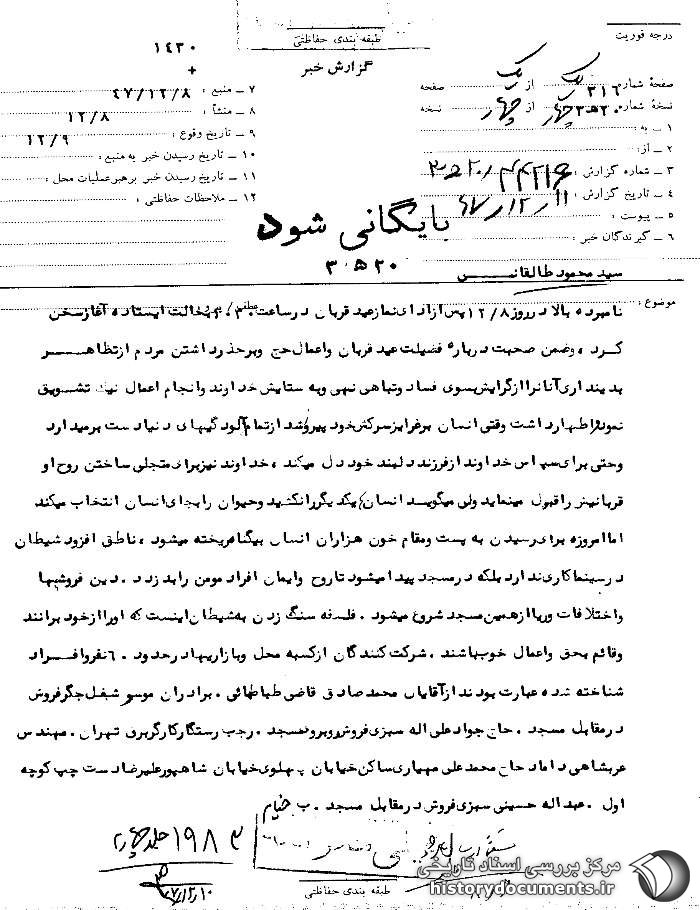 درجه فوریت
طبقه بندی حفاظتی
۱۴۳۰
+
گزارش خبر
صفحهٔ شماره ۳۱۶ یک از یک صفحه
نسخهٔ شماره ۳۰۵۲۰ چهار از چهار نسخه
۱ ـ به :
۲ ـ از :
۳ ـ شماره گزارش :
۴ ـ تاریخ گزارش : ۱۱ر۱۲ر۴۷
۵ ـ پیوست :
۶ ـ گیرندگان خبر :
۷ ـ منبع : ۴۷/۱۲/۸
۸ ـ منشأ : ۱۲/۸
۹ ـ تاریخ وقوع : ۱۲/۹
۱۰ ـ تاریخ رسیدن خبر به منبع :
۱۱ ـ تاریخ رسیدن خبر برهبر عملیات محل :
۱۲ ـ ملاحظات حفاظتی :
بایگانی شود
۳۰۵۲۰
سید محمود طالقانی
موضوع :
نامبرده بالا در روز ۱۲/۸ پس از ادای نماز عید قربان در ساعت بحالت ایستاده آغاز سخن
کرد ، وضمن صحبت درباره فضیلت عید قربان واعمال حج وبرحذر داشتن مردم از تظاهر
بدینداری آنانرا از گرایش بسوی فساد وتباهی نهی وبه ستایش خداوند وانجام اعمال نیک تشویق
نمود واظهار داشت وقتی انسان برغرایز سرکش خود پیروز شد از تمام آلودگیهای دنیا دست برمیدارد
وحتی برای سپاس خداوند از فرزند دلبند خود دل میکند ، خداوند نیز برای متجلی ساختن روح او
قربانیش را قبول مینماید ولی میگوید انسان یکدیگر را نکشید وحیوان را بجای انسان انتخاب میکند
اما امروزه برای رسیدن به پست ومقام خون هزاران انسان بیگناه ریخته میشود ، ناطق افزود شیطان
در سینما کاری ندارد بلکه در مسجد پیدا میشود تا روح وایمان افراد مومن را بدزدد . دین فروشیها
واختلافات وریا از همین مسجد شروع میشود . فلسفه سنگ زدن به شیطان اینست که اورا از خود برانند
وقائم بحق واعمال خوب باشند ، شرکت کنندگان از کسبه محل وبازاریها در حدود نفر وافراد
شناخته شده عبارت بودند از آقایان محمد صادق قاضی طباطبائی . برادران موسوی شغل جگرفروش
در مقابل مسجد . حاج جواد علی اله سبزی فروش روبروی مسجد . رجب رستگار کارگر برق تهران . مهندس
عربشاهی داماد حاج محمد علی مهیاری ساکن خیابان پهلوی خیابان شاهپور علیرضا دست چپ کوچه
اول . عبداله حسینی سبزی فروش در مقابل مسجد . ب خیام
۱۹۸۳ جلد چهار
طبقه بندی حفاظتی
مرکز بررسی اسناد تاریخی
historydocuments.ir